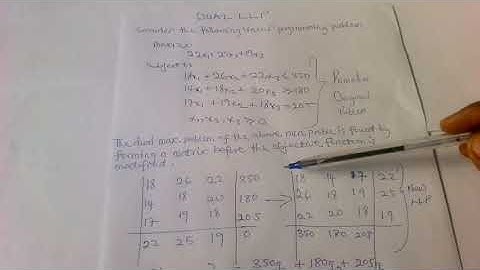 DUAL LLP
Consider the following linear programming problem
22x₁ + 25x₂ + 19x₃
Subject to
18x₁ + 26x₂ + 22x₃ ≤ 350
14x₁ + 18x₂ + 20x₃ ≥ 180
17x₁ + 19x₂ + 18x₃ = 205
x₁, x₂, x₃ ≥ 0
Original
The dual max problem of the above min prob is found by
forming a matrix before the objective function is
modified.
18 26 22 350
14 18 20 180
17 19 18 205
22 25 19 0
18 14 17 22
26 18 19 25
22 20 18 19
350 180 205
New
LLP
350q₁ + 180q₂ + 205q